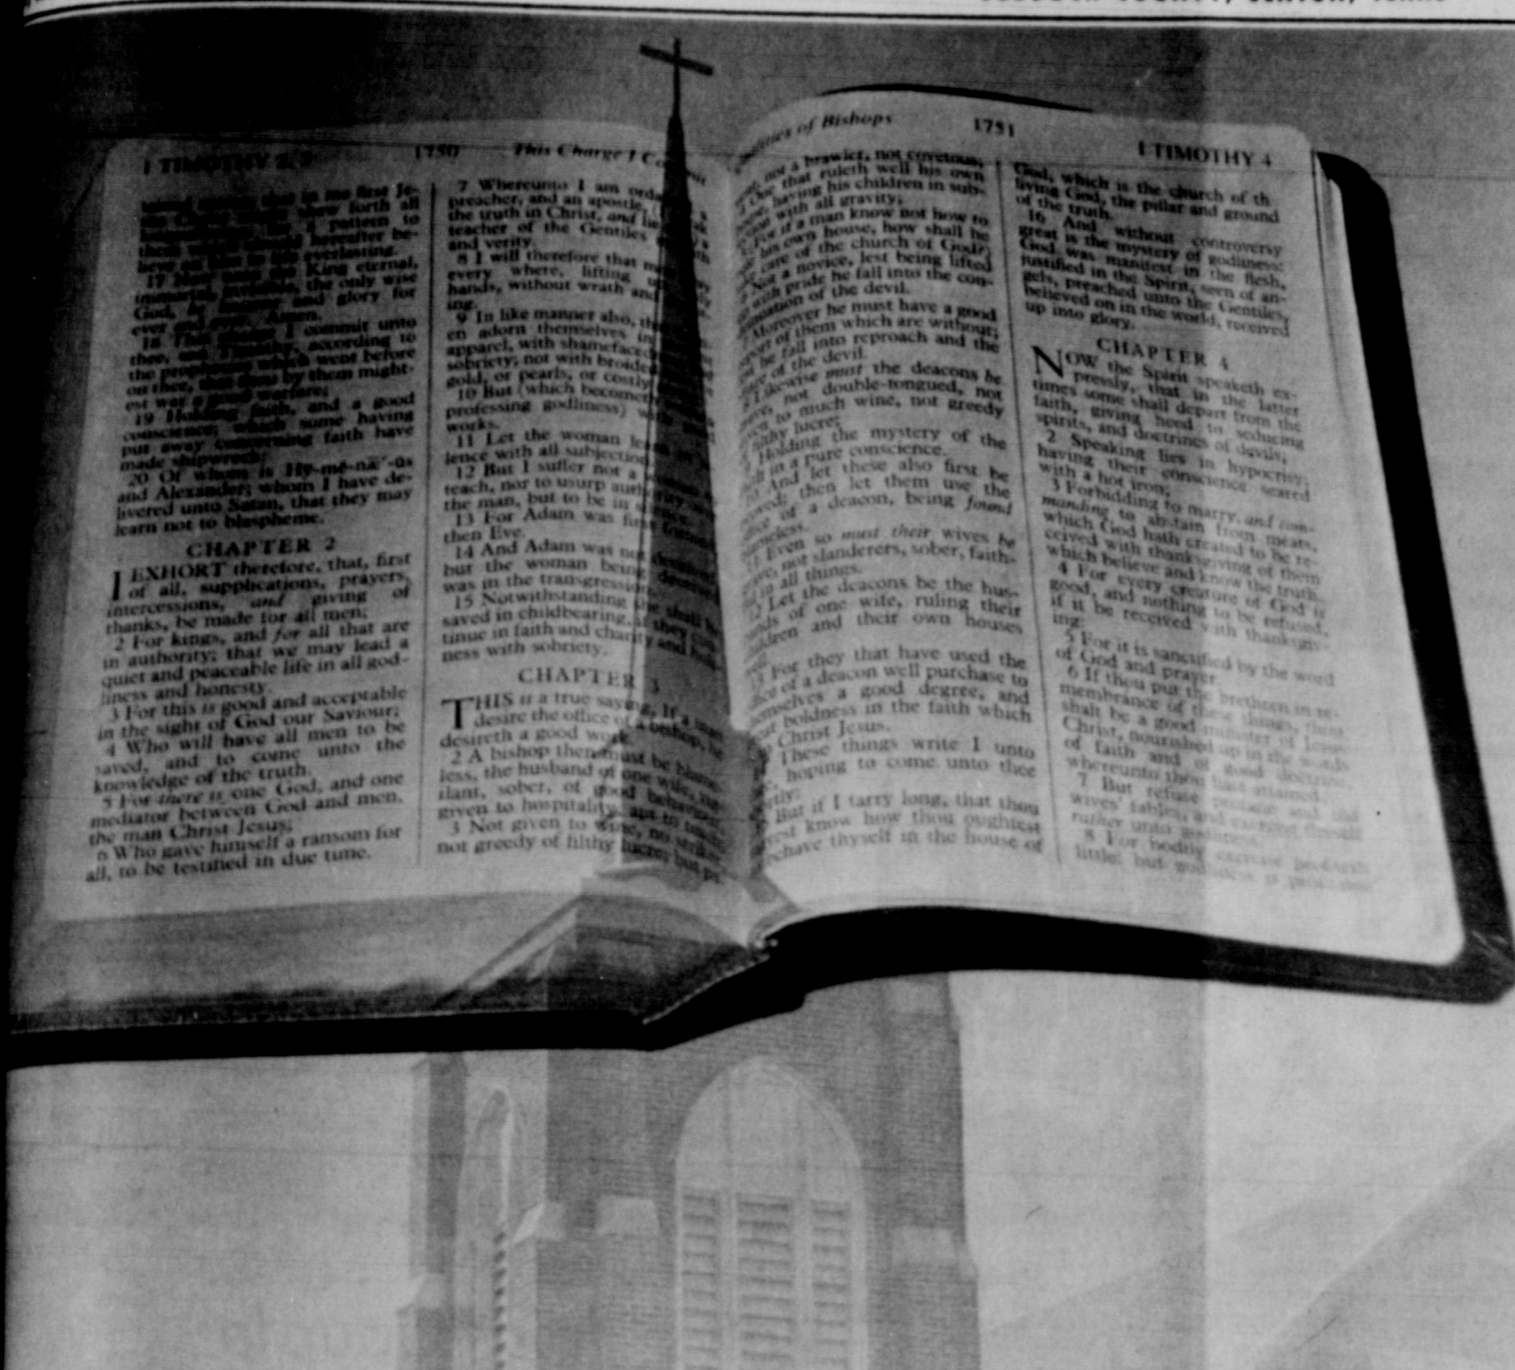 COUNTY, DENTON, TEXAS
I TIMOTHY 2, 3
1750
This Charge I
first Je-
show forth all
pattern to
hereafter be-
everlasting.
17 the King eternal,
the only wise
God, and glory for
ever Amen.
18 This I commit unto
thee, according to
the prophecies which went before
on thee, that by them might-
est war a good warfare;
19 Holding faith, and a good
conscience; which some having
put away concerning faith have
made shipwreck:
20 Of whom is Hy-me-næ'-us
and Alexander; whom I have de-
livered unto Satan, that they may
learn not to blaspheme.
CHAPTER 2
I EXHORT therefore, that, first
of all, supplications, prayers,
intercessions, and giving of
thanks, be made for all men;
2 For kings, and for all that are
in authority; that we may lead a
quiet and peaceable life in all god-
liness and honesty.
3 For this is good and acceptable
in the sight of God our Saviour;
4 Who will have all men to be
saved, and to come unto the
knowledge of the truth.
5 For there is one God, and one
mediator between God and men,
the man Christ Jesus;
6 Who gave himself a ransom for
all, to be testified in due time.
7 Whereunto I am
preacher, and an apostle,
the truth in Christ, and
teacher of the Gentiles
and verity.
8 I will therefore that
every where, lifting
hands, without wrath and
ing.
9 In like manner also,
en adorn themselves in
apparel, with
sobriety; not with
gold, or pearls, or costly
10 But (which
professing godliness)
works.
11 Let the woman
lence with all subjection
12 But I suffer not a
teach, nor to usurp
the man, but to be in
13 For Adam was first
then Eve.
14 And Adam was not
but the woman being
was in the
15 Notwithstanding she shall be
saved in childbearing, if they
tinue in faith and charity and
ness with sobriety.
CHAPTER 3
THIS is a true saying, If a man
desire the office of a bishop, he
desireth a good work.
2 A bishop then must be blame-
less, the husband of one wife,
ilant, sober, of good behaviour,
given to hospitality, apt to teach;
3 Not given to wine, no striker,
not greedy of filthy lucre; but
of Bishops
1751
I TIMOTHY 4
not a brawler, not covetous;
One that ruleth well his own
having his children in sub-
with all gravity;
For if a man know not how to
his own house, how shall he
care of the church of God?)
Not a novice, lest being lifted
with pride he fall into the con-
of the devil.
Moreover he must have a good
of them which are without;
he fall into reproach and the
of the devil.
Likewise must the deacons be
not double-tongued, not
to much wine, not greedy
filthy lucre;
Holding the mystery of the
in a pure conscience.
And let these also first be
then let them use the
of a deacon, being found
Even so must their wives be
not slanderers, sober, faith-
in all things.
Let the deacons be the hus-
of one wife, ruling their
and their own houses
For they that have used the
of a deacon well purchase to
a good degree, and
boldness in the faith which
Christ Jesus.
These things write I unto
hoping to come unto thee
But if I tarry long, that thou
know how thou oughtest
thyself in the house of
God, which is the church of th
living God, the pillar and ground
of the truth.
16 And without controversy
great is the mystery of godliness:
God was manifest in the flesh,
justified in the Spirit, seen of an-
gels, preached unto the Gentiles,
believed on in the world, received
up into glory.
CHAPTER 4
NOW the Spirit speaketh ex-
pressly, that in the latter
times some shall depart from the
faith, giving heed to seducing
spirits, and doctrines of devils;
2 Speaking lies in hypocrisy;
having their conscience seared
with a hot iron;
3 Forbidding to marry, and com-
manding to abstain from meats,
which God hath created to be re-
ceived with thanksgiving of them
which believe and know the truth.
4 For every creature of God is
good, and nothing to be refused,
if it be received with thanksgiv-
ing:
5 For it is sanctified by the word
of God and prayer.
6 If thou put the brethren in re-
membrance of these things, thou
shalt be a good minister of Jesus
Christ, nourished up in the words
of faith and of good doctrine,
whereunto thou hast attained.
7 But refuse profane and old
wives' fables, and exercise thyself
rather unto godliness.
8 For bodily exercise profiteth
little: but godliness is profitable